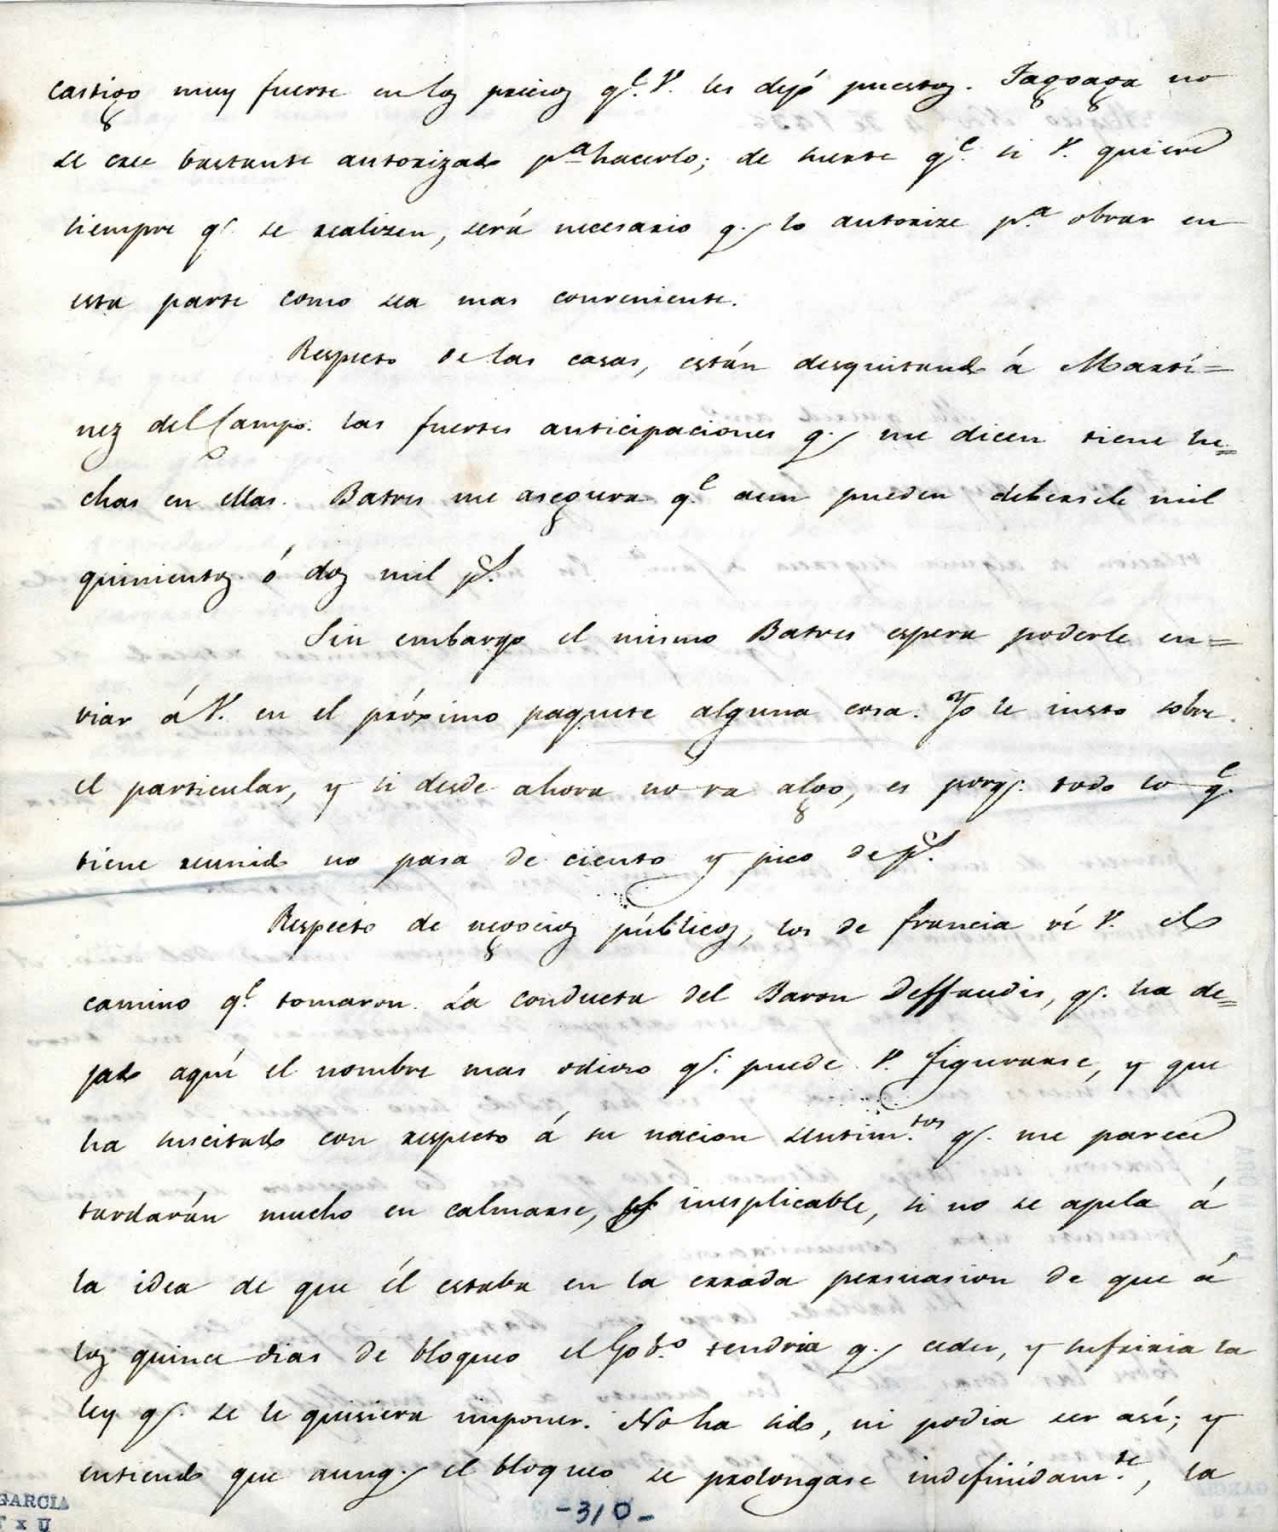 castigo muy fuerte en los precios q.e V. les dejó puestos. Fagoaga no
se cree bastante autorizado p.a hacerlo; de suerte q.e si V. quiere
siempre q.e se realizen, será necesario q.e lo autorize p.a obrar en
esta parte como sea mas conveniente.
Respecto de las casas, están desquitando á Martí=
nez del Campo las fuertes anticipaciones q.e me dicen tiene he=
chas en ellas. Batres me asegura q.e aun pueden debersele mil
quinientos ó dos mil p.s
Sin embargo el mismo Batres espera poderle en=
viar á V. en el próximo paquete alguna cosa. Yo le insto sobre
el particular, y si desde ahora no va algo, es porq.e todo lo q.e
tiene reunido no pasa de ciento y pico de p.s
Respecto de negocios públicos, los de francia vé V. el
camino q.e tomaron. La conducta del Baron Deffaudis, q.e ha de=
jado aquí el nombre mas odioso q.e puede V. figurarse, y que
ha suscitado con respecto á su nacion sentim.tos q.e me parece
tardarán mucho en calmarse, es inesplicable, si no se apela á
la idea de que él estaba en la errada persuasion de que á
los quince dias de bloqueo el Gob.o tendria q.e ceder, y sufriria la
ley q.e se le quisiera imponer. No ha sido, ni podia ser así; y
entiendo que aunq.e el bloqueo se prolongase indefinidam.te, la
-310-
GARCIA